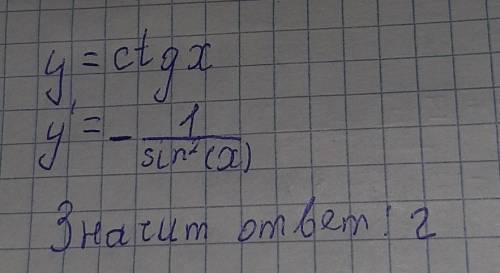 y = ctg x
y' = - 1/sin²(x)
Значит ответ: г